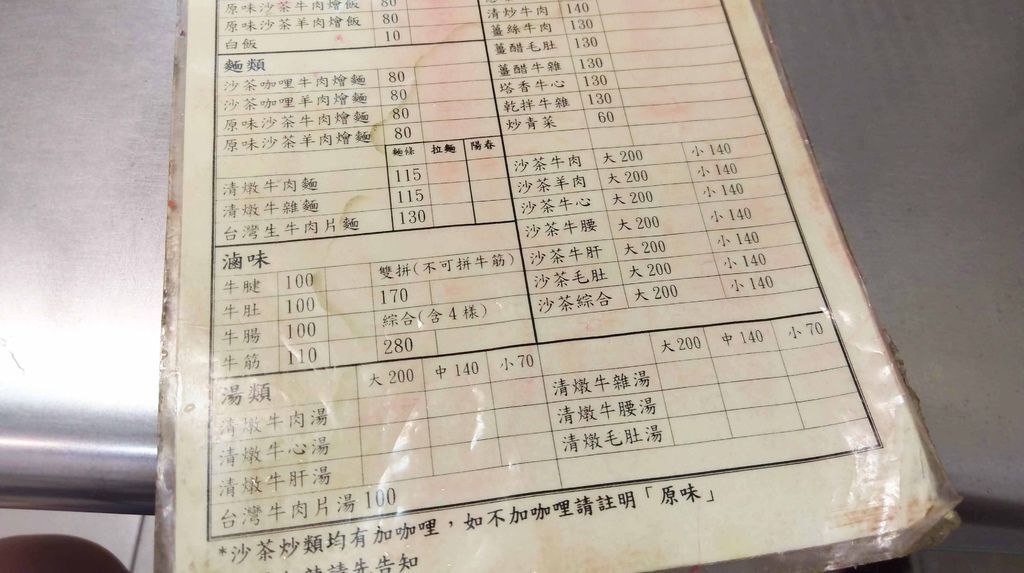 原味沙茶牛肉燴飯 80
原味沙茶羊肉燴飯 80
白飯 10
麵類
沙茶咖哩牛肉燴麵 80
沙茶咖哩羊肉燴麵 80
原味沙茶牛肉燴麵 80
原味沙茶羊肉燴麵 80
麵條 拉麵 陽春
清燉牛肉麵 115
清燉牛雜麵 115
台灣生牛肉片麵 130
滷味
牛腱 100 雙拼(不可拼牛筋)
牛肚 100 170
牛腸 100 綜合(含4樣)
牛筋 110 280
清炒牛肉 140
薑絲牛肉 130
薑醋毛肚 130
薑醋牛雜 130
塔香牛心 130
乾拌牛雜 130
炒青菜 60
沙茶牛肉 大200 小140
沙茶羊肉 大200 小140
沙茶牛心 大200 小140
沙茶牛腰 大200 小140
沙茶牛肝 大200 小140
沙茶毛肚 大200 小140
沙茶綜合 大200 小140
湯類 大200 中140 小70
清燉牛肉湯
清燉牛心湯
清燉牛肝湯
台灣牛肉片湯 100
大200 中140 小70
清燉牛雜湯
清燉牛腰湯
清燉毛肚湯
*沙茶炒類均有加咖哩，如不加咖哩請註明「原味」
請先告知